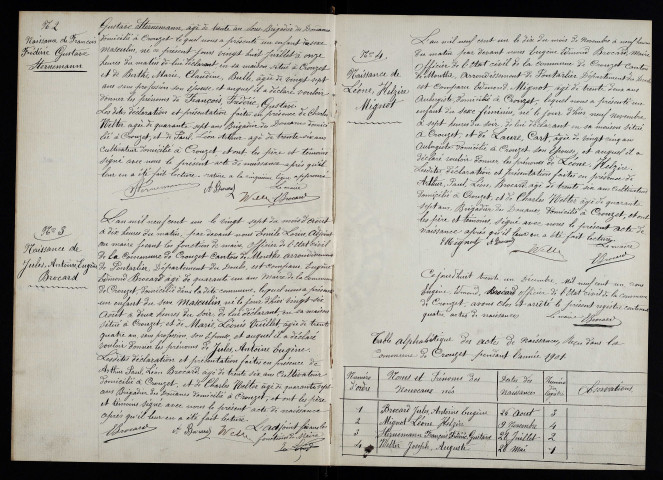 N° 2
Naissance de François
Frédéric Gustave
Sternemann
Gustave Sternemann, âgé de trente six ans Brigadier des Douanes
domicilié à Crouzet, lequel nous a présenté un enfant du sexe
masculin, né le présent jours vingt huit juillet à onze
heures du matin de lui déclarant en sa maison située à Crouzet
et de Berthe Marie, Claudine, âgée de vingt sept
ans sans profession son épouse, et auquel il a déclaré vouloir
donner les prénoms de François, Frédéric, Gustave.
Les dites déclaration et présentation faites en présence de Charles
Welté âgé de quarante sept ans Brigadier des Douanes domicilié
à Crouzet, et de Paul, Léon Arthur âgé de trente six ans
Cultivateur domicilié à Crouzet, et ont les père et témoins
signé avec nous le présent acte de naissance après qu'il
leur en a été fait lecture.
Sternemann
A Brocard
Welté
Le maire
E Brocard
N° 3
Naissance de
Jules, Antoine Eugène
Brocard
L'an mil neuf cent un le vingt sept du mois d'août
à dix heures du matin, par devant nous Emile Léon
au maire faisant les fonctions de maire Officier de l'état civil
de la Commune de Crouzet Canton de Mouthe arrondissement
de Pontarlier, Département du Doubs, est comparu Eugène
Edmond Brocard âgé de quarante un ans Maire de la commune
de Crouzet, domicilié dans la dite commune, lequel nous a présenté
un enfant du sexe Masculin né le jour d'hier vingt six
Août à deux heures du soir, de lui déclarant, en sa maison
située à Crouzet, et de Marie, Léonie âgée de trente
quatre ans sans profession son épouse, et auquel il a déclaré
vouloir donner les prénoms de Jules, Antoine Eugène.
Les dites déclaration et présentation faites en présence de
Arthur Paul, Léon Brocard âgé de trente six ans Cultivateur
domicilié à Crouzet, et de Charles Welté âgé de quarante sept
ans Brigadier des Douanes domicilié à Crouzet, et ont les père
et témoins signé avec nous le présent acte de naissance
après qu'il leur en a été fait lecture.
E Brocard
A Brocard Welté L'adjoint faisant les
fonctions de Maire
N° 4
Naissance de
Léone, Helzire
Mignot
L'an mil neuf cent un le dix du mois de Novembre à neuf heures
du matin par devant nous Eugène Edmond Brocard Maire
Officier de l'état civil de la commune de Crouzet Canton
de Mouthe, Arrondissement de Pontarlier Département du Doubs
est comparu Edmond Mignot âgé de trente deux ans
Aubergiste domicilié à Crouzet, lequel nous a présenté un
enfant du sexe féminin, né le jour d'hier neuf novembre
à sept heures du soir, de lui déclarant en sa maison située
à Crouzet et de Laure Cart âgée de vingt cinq ans
Aubergiste domicilié à Crouzet son épouse, et auquel il a
déclaré vouloir donner les prénoms de Léone, Helzire.
Les dites déclaration et présentation faites en présence de
Arthur, Paul, Léon Brocard, âgé de trente six ans Cultivateur
domicilié à Crouzet, et de Charles Welté âgé de quarante
sept ans Brigadier des Douanes domicilié à Crouzet, et ont
les père et témoins, signé avec nous le présent acte de
naissance après qu'il leur en a été fait lecture.
E Mignot A Brocard
Welté
Le maire
E Brocard
Cejourd'hui trente un décembre, mil neuf cent un nous
Eugène, Edmond, Brocard officier de l'état civil de la commune
de Crouzet, avons clos et arrêté le présent registre contenant
quatre actes de naissance.
Le maire
E Brocard
Table alphabétique des actes de naissance, reçus dans la
commune de Crouzet pendant l'année 1901
Numéros d'ordre
Noms et Prénoms des Nouveaux nés
Dates des naissances
Numéros du registre
Observations
1 Brocard Jules, Antoine Eugène 26 Août 3
2 Mignot Léone Helzire 9 Novembre 4
3 Sternemann François Frédéric Gustave 28 Juillet 2
4 Welter Joseph, Auguste 28 Mai 1